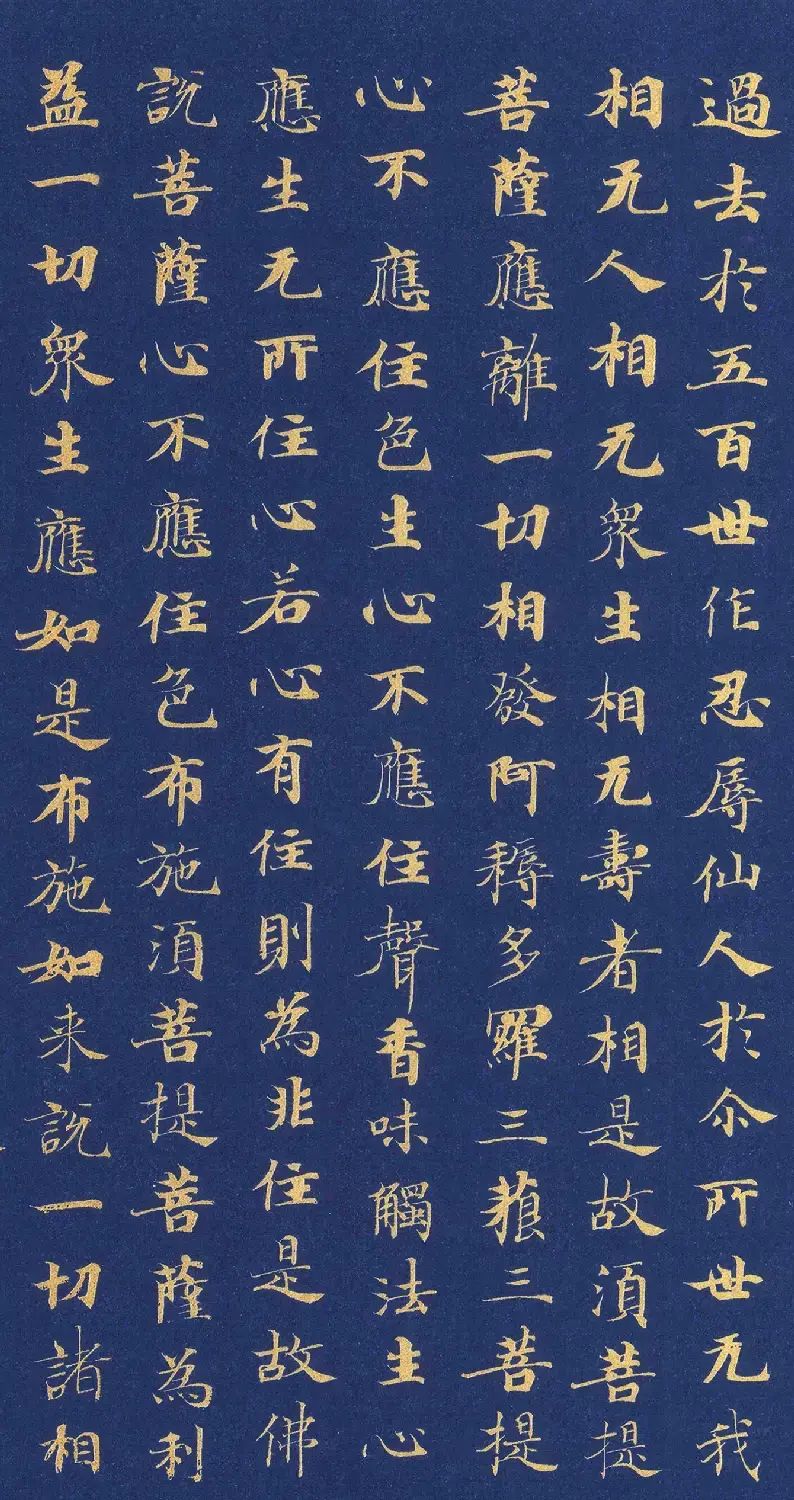 過去於五百世作忍辱仙人於尒所世无我
相无人相无衆生相无壽者相是故須菩提
菩薩應離一切相發阿耨多羅三藐三菩提
心不應住色生心不應住聲香味觸法生心
應生无所住心若心有住則為非住是故佛
說菩薩心不應住色布施須菩提菩薩為利
益一切衆生應如是布施如来說一切諸相